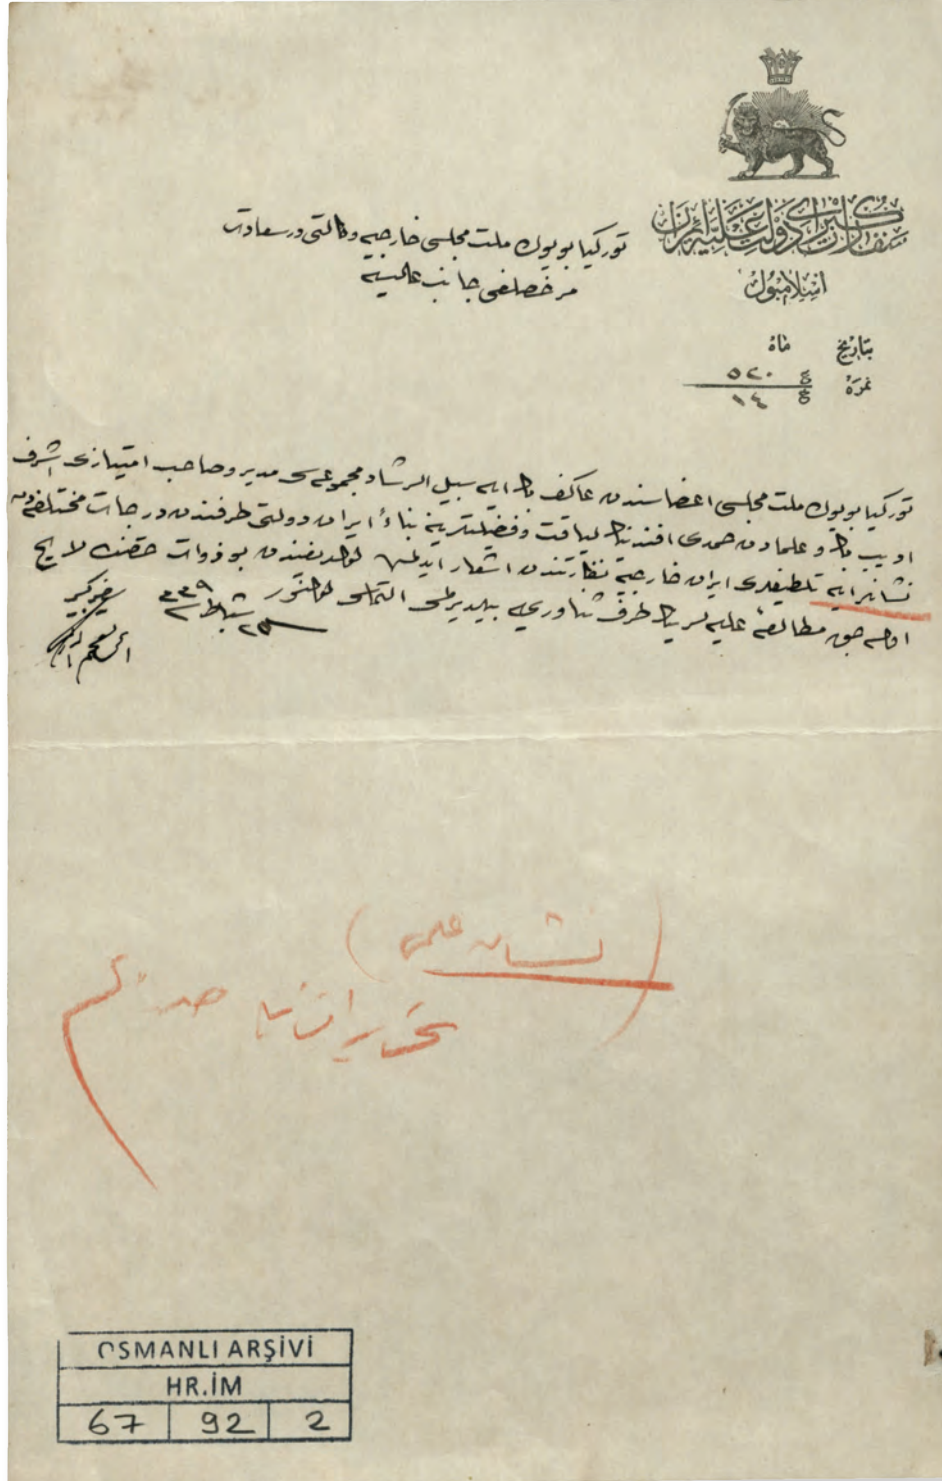 سفارت کبرای دولت علیه ایران
اسلامبول
تورکیا بویوك ملت مجلسی خارجیه وکالتی درسعادت
مرخصلغی جانب عالیسنه
بتاریخ ماه
نمره ٥٢٠
١٤
تورکیا بویوك ملت مجلسی اعضاسندن عاکف بك ایله سبیل الرشاد مجموعه سی مدیر و صاحب امتیازی اشرف
ادیب بك و علمادن حمدی افندینك لیاقت و فضیلتلرینه بناءً ایران دولتی طرفندن درجات مختلفه دن
نشانلر ایله تلطیفلری ایران خارجیه نظارتندن اشعار ایدلمش اولدیغندن بو ذوات حقنده لایح
اوله جق مطالعۀ علیه لرینك طرف ثناوری یه بیلدیرلمسی التماس اولنور ٢٢ شباط ٣٣٩
سفیر کبیر
(نشان علمی)
تحریراتنك
OSMANLI ARŞİVİ
HR.İM
67 92 2